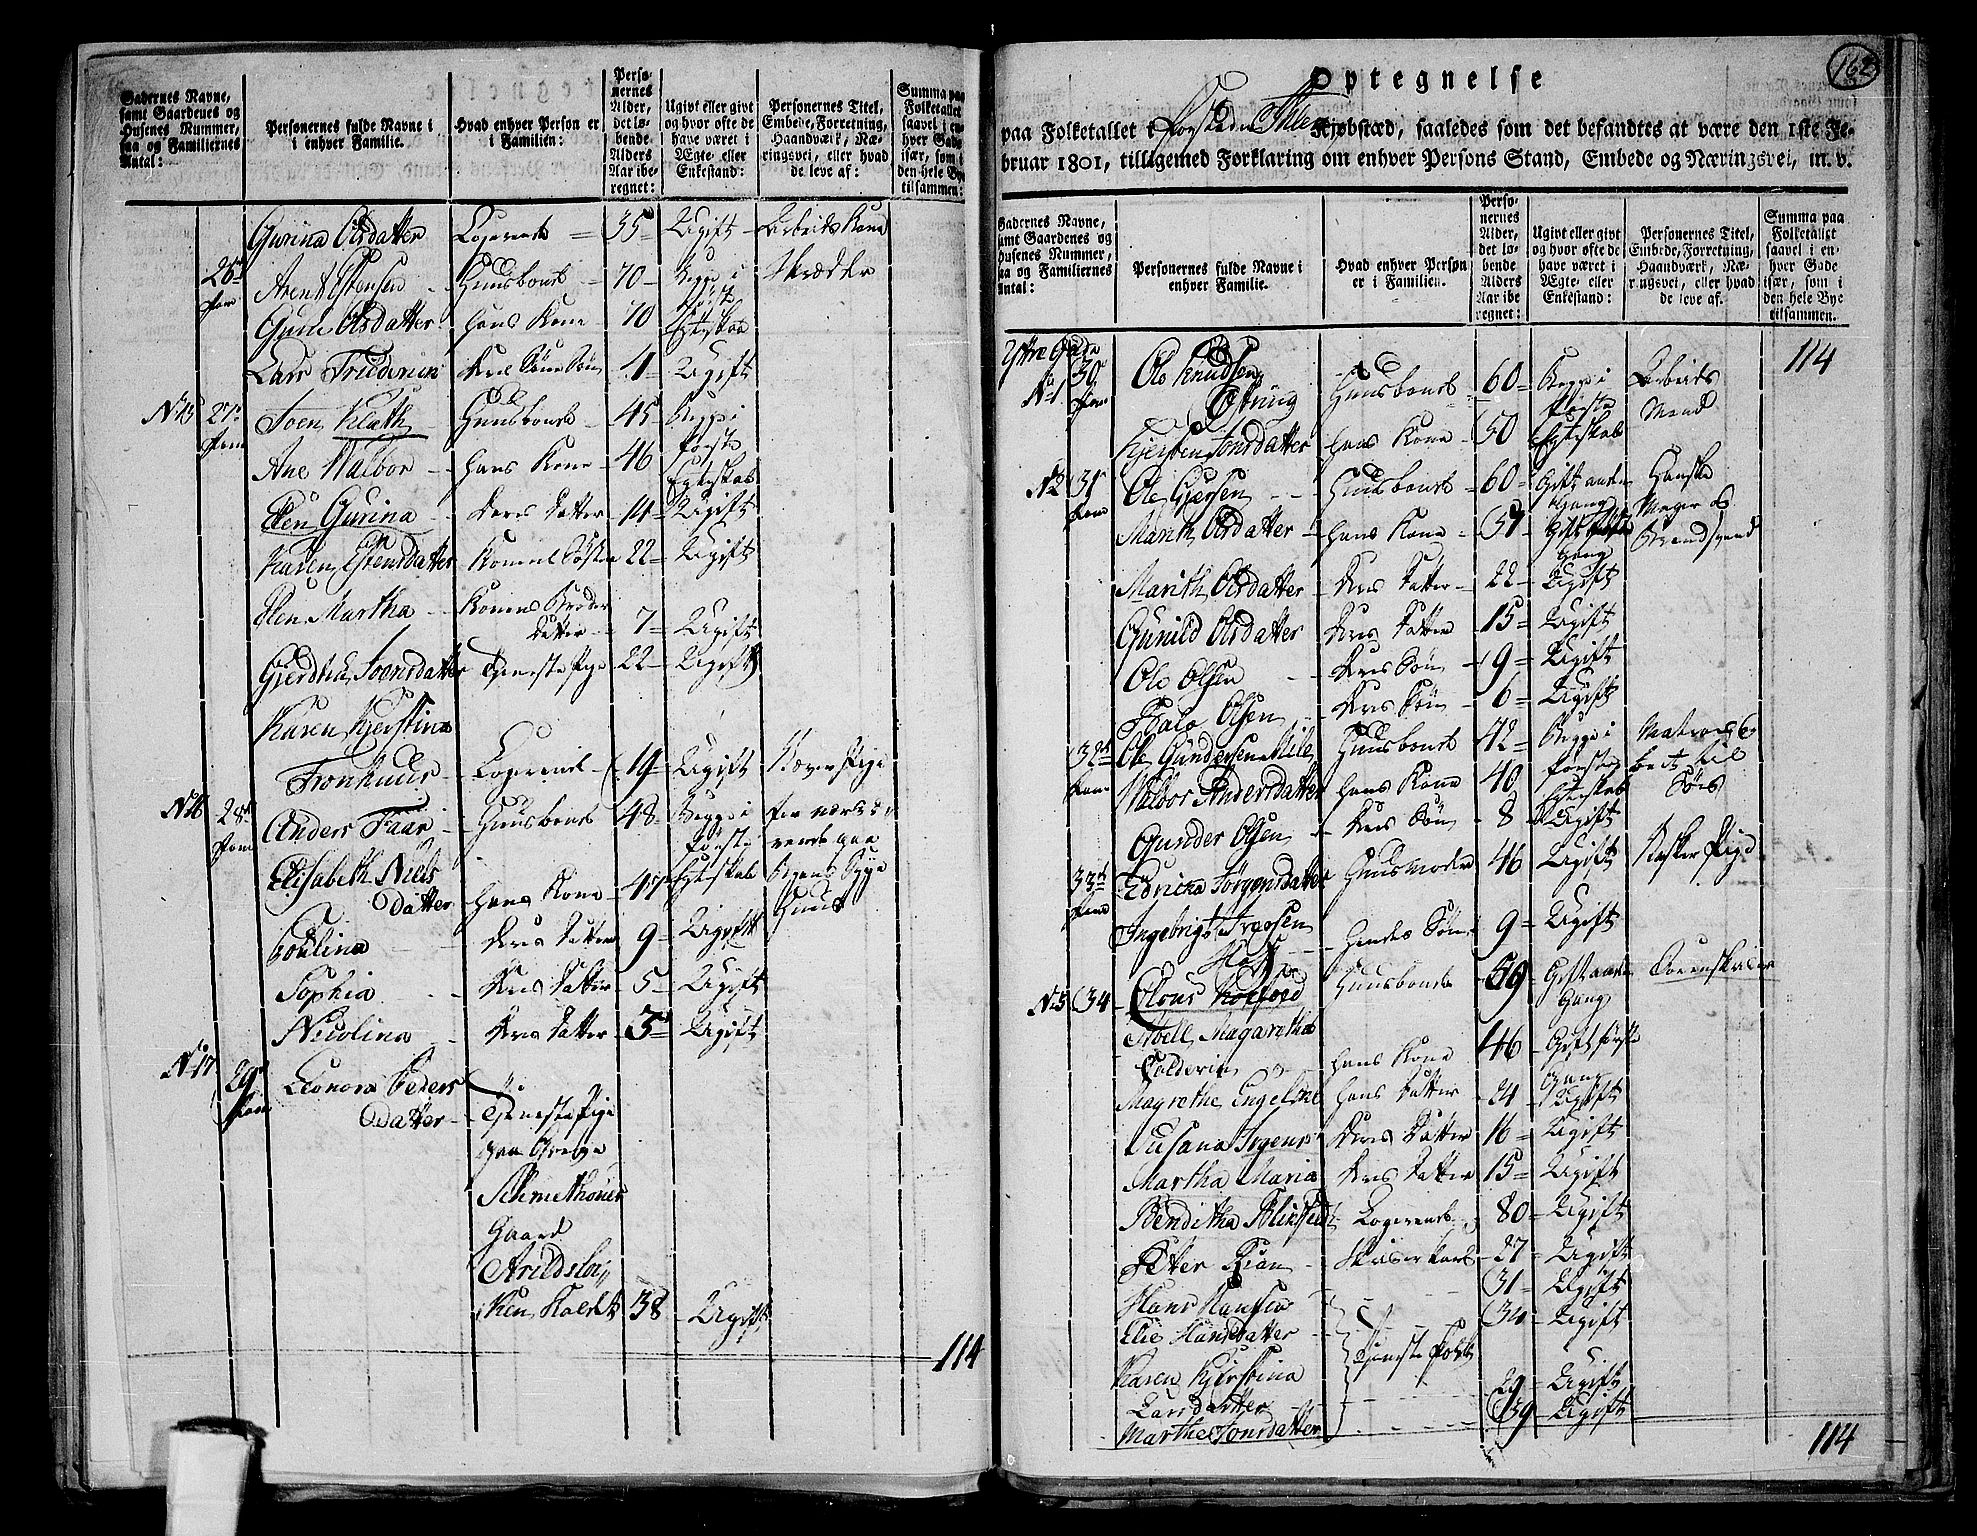 Gadernes Navne, samt Gaardenes og Husenes Nummer, saa og Familiernes Antal:
Personernes fulde Navne i i enhver Familie.
Hvad enhver Person er i Familien:
Personernes Alder, det løbende Alders Aar iberegnet:
Ugivt eller givt og hvor ofte de have været i Ægte- eller Enkestand:
Personernes Titel, Embede, Forretning, Haandværk, Næringsvei, eller hvad de leve af:
Summa paa Folketallet saavel i enhver Gade især, som i den hele Bye tilsammen:
Gurina Olsdatter Logerende 35 Ugift Arbeids Kone
26 Fam Arent Estensen Huusbonde 70 Begge i Skrædder
Guru Olsdatter hans Kone 70 første Egteskab
Lars Friderich 4 Ugift
No 15 27 Fam Joen Klæth Huusbonde 45 Begge i
Ane Walbor hans Kone 46 første Egteskab
Ellen Gurina deres Datter 14 Ugift
Karen Estensdatter Konens Søster 22 Ugift
Elen Martha Konens Broder
Datter 7 Ugift
Giertha Joensdatter Tieneste Pige 22 Ugift
Karen Kjerstina
Tronhuus Logerende 19 Ugift Væver Pige
No 16 28 Fam Anders Faar Huusbonde 48 Begge i
Elisabeth Niels første Egteskab
Datter hans Kone 47 Huus
Poulina deres Datter 9 Ugift
Sophia deres Datter 5 Ugift
Nicolina deres Datter 3 Ugift
No 17 29 Fam Leonora Peders
Datter Tieneste Pige
paa
Schmethouer
Gaard
Arildsløk
ken kaldet 38 Ugift
114
162
Optegnelse
paa Folketallet i Forstaden Kjøbstæd, saaledes som det befandtes at være den 1ste Fe-
bruar 1801, tilligemed Forklaring om enhver Persons Stand, Embede og Næringsvei, m. v.
Gadernes Navne, samt Gaardenes og Husenes Nummer, saa og Familiernes Antal:
Personernes fulde Navne i enhver Familie.
Hvad enhver Person er i Familien.
Personernes Alder, det løbende Alders Aar iberegnet:
Ugivt eller givt og hvor ofte de have været i Ægte- eller Enkestand:
Personernes Titel, Embede, Forretning, Haandværk, Næringsvei, eller hvad de leve af.
Summa paa Folketallet saavel i enhver Gade især, som i den hele Bye tilsammen.
Ystre Gade 114
No 1 30 Fam Ole Knudsen Huusbonde 60 Begge i Arbeids
Østring første Mand
Kjersten Jonsdatter hans Kone 50 Egteskab
No 2 31 Fam Ole Gjersen Huusbonde 60 Gift anden Gang Hanske
Marith Olsdatter hans Kone 57 Gift første Gang Mager
Marith Olsdatter deres Datter 22 Ugift
Gunild Olsdatter deres Datter 15 Ugift
Ole Olsen deres Søn 9 Ugift
Olsen deres Søn 6 Ugift
32 Fam Ole Gundersen Huusbonde 42 Begge i Matros
Walbor Andersdatter hans Kone 40 første Egteskab til Søes
Gunder Olsen deres Søn 8 Ugift
33 Fam Edricka Jørgensdatter Huusmoder 46 Ugift Pige
Ingebrigt
Hendes Søn 9 Ugift
No 5 34 Clous Huusbonde 59 Gift anden Gang
Magaretha
hans Kone 46 Gift første Gang
Magrethe Engelbr hans Datter 24 Ugift
Susana Irgens deres Datter 16 Ugift
Martha Maria deres Datter 15 Ugift
Benditha Logerende 80 Ugift
Petter 27 Ugift
Hans Hansen 31 Ugift
Elie Hansdatter 34 Ugift
Tieneste Folk
Karen Kjerstina
Larsdatter 29 Ugift
Marthe Jonsdatter 59 Ugift
114